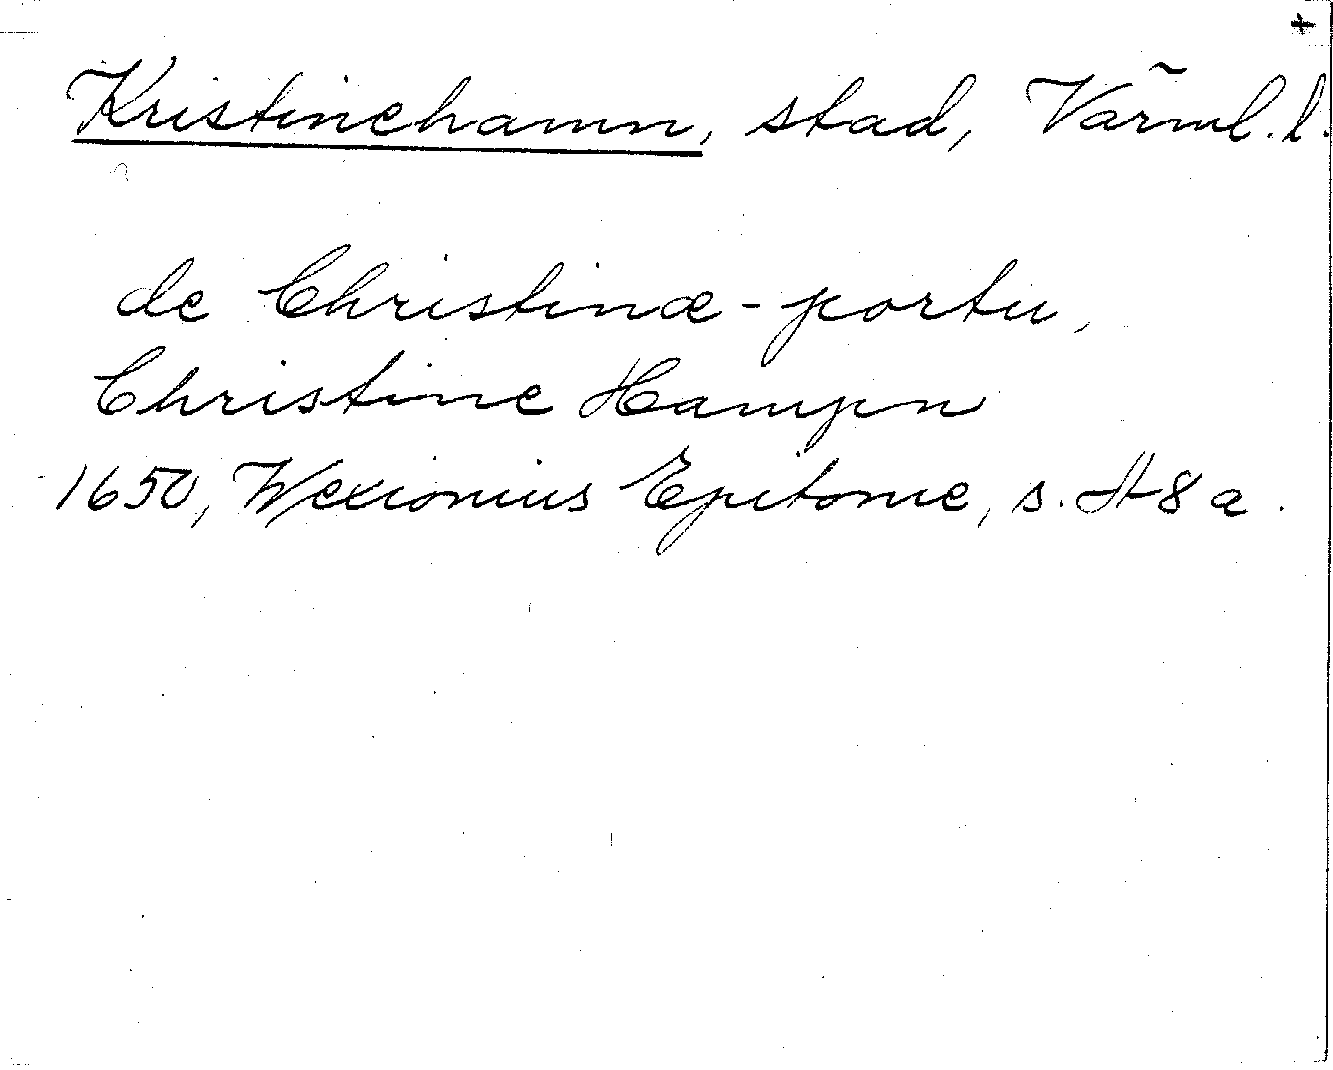 +
Kristinehamn, stad, Värml. l.
de Christinæ-portu,
Christine Hampn
1650, Wexionius Epitome, s. H8a.